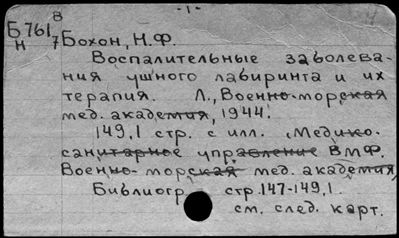 -1-
Б761 8
Н 7 Бохон, Н.Ф.
Воспалительные заболева-
ния ушного лабиринта и их
терапия. Л., Военно-морская
мед. академия, 1944.
149,1 стр. с илл. (Медико-
санитарное управление ВМФ.
Военно-морская мед. академия)
Библиогр. стр. 147-149,1.
см. след. карт.